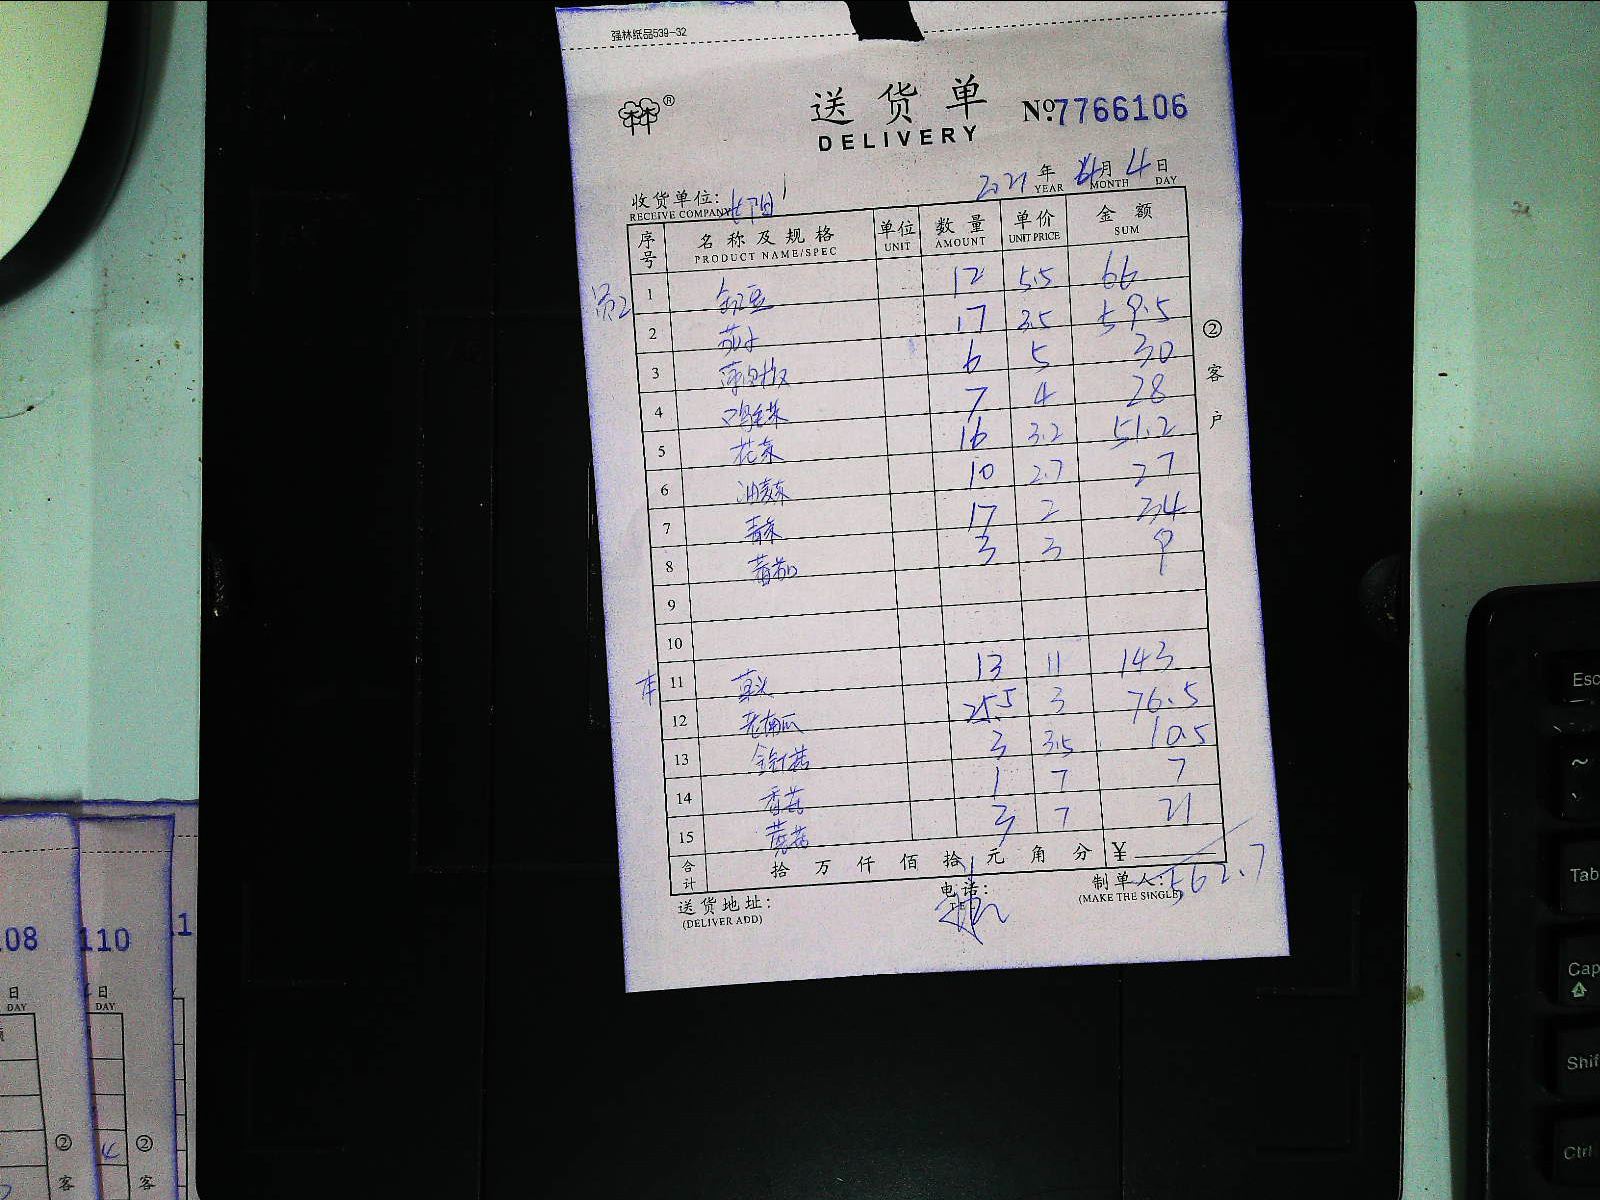 强林纸品539-32
送货单 №7766106
DELIVERY
2021年 4月 4日
YEAR MONTH DAY
收货单位:
RECEIVE COMPANY
序号 名称及规格 单位 数量 单价 金额
PRODUCT NAME/SPEC UNIT AMOUNT UNIT PRICE SUM
1 12 5.5 66
2 茄子 17 3.5 59.5
3 6 5 30
4 7 4 28
5 花菜 16 3.2 51.2
6 油麦菜 10 2.7 27
7 青菜 17 2 34
8 蕃茄 3 3 9
9
10
11 13 11 143
12 老南瓜 25.5 3 76.5
13 金针菇 3 3.5 10.5
14 香菇 1 7 7
15 3 7 21
合计 拾 万 仟 佰 拾 元 角 分 ¥ 562.7
送货地址: 电话: 制单人:
(DELIVER ADD) (MAKE THE SINGLE)
②客户
08
110
1
日
DAY
日
DAY
②客
②客
Esc
~
Tab
Cap
Shif
Ctrl